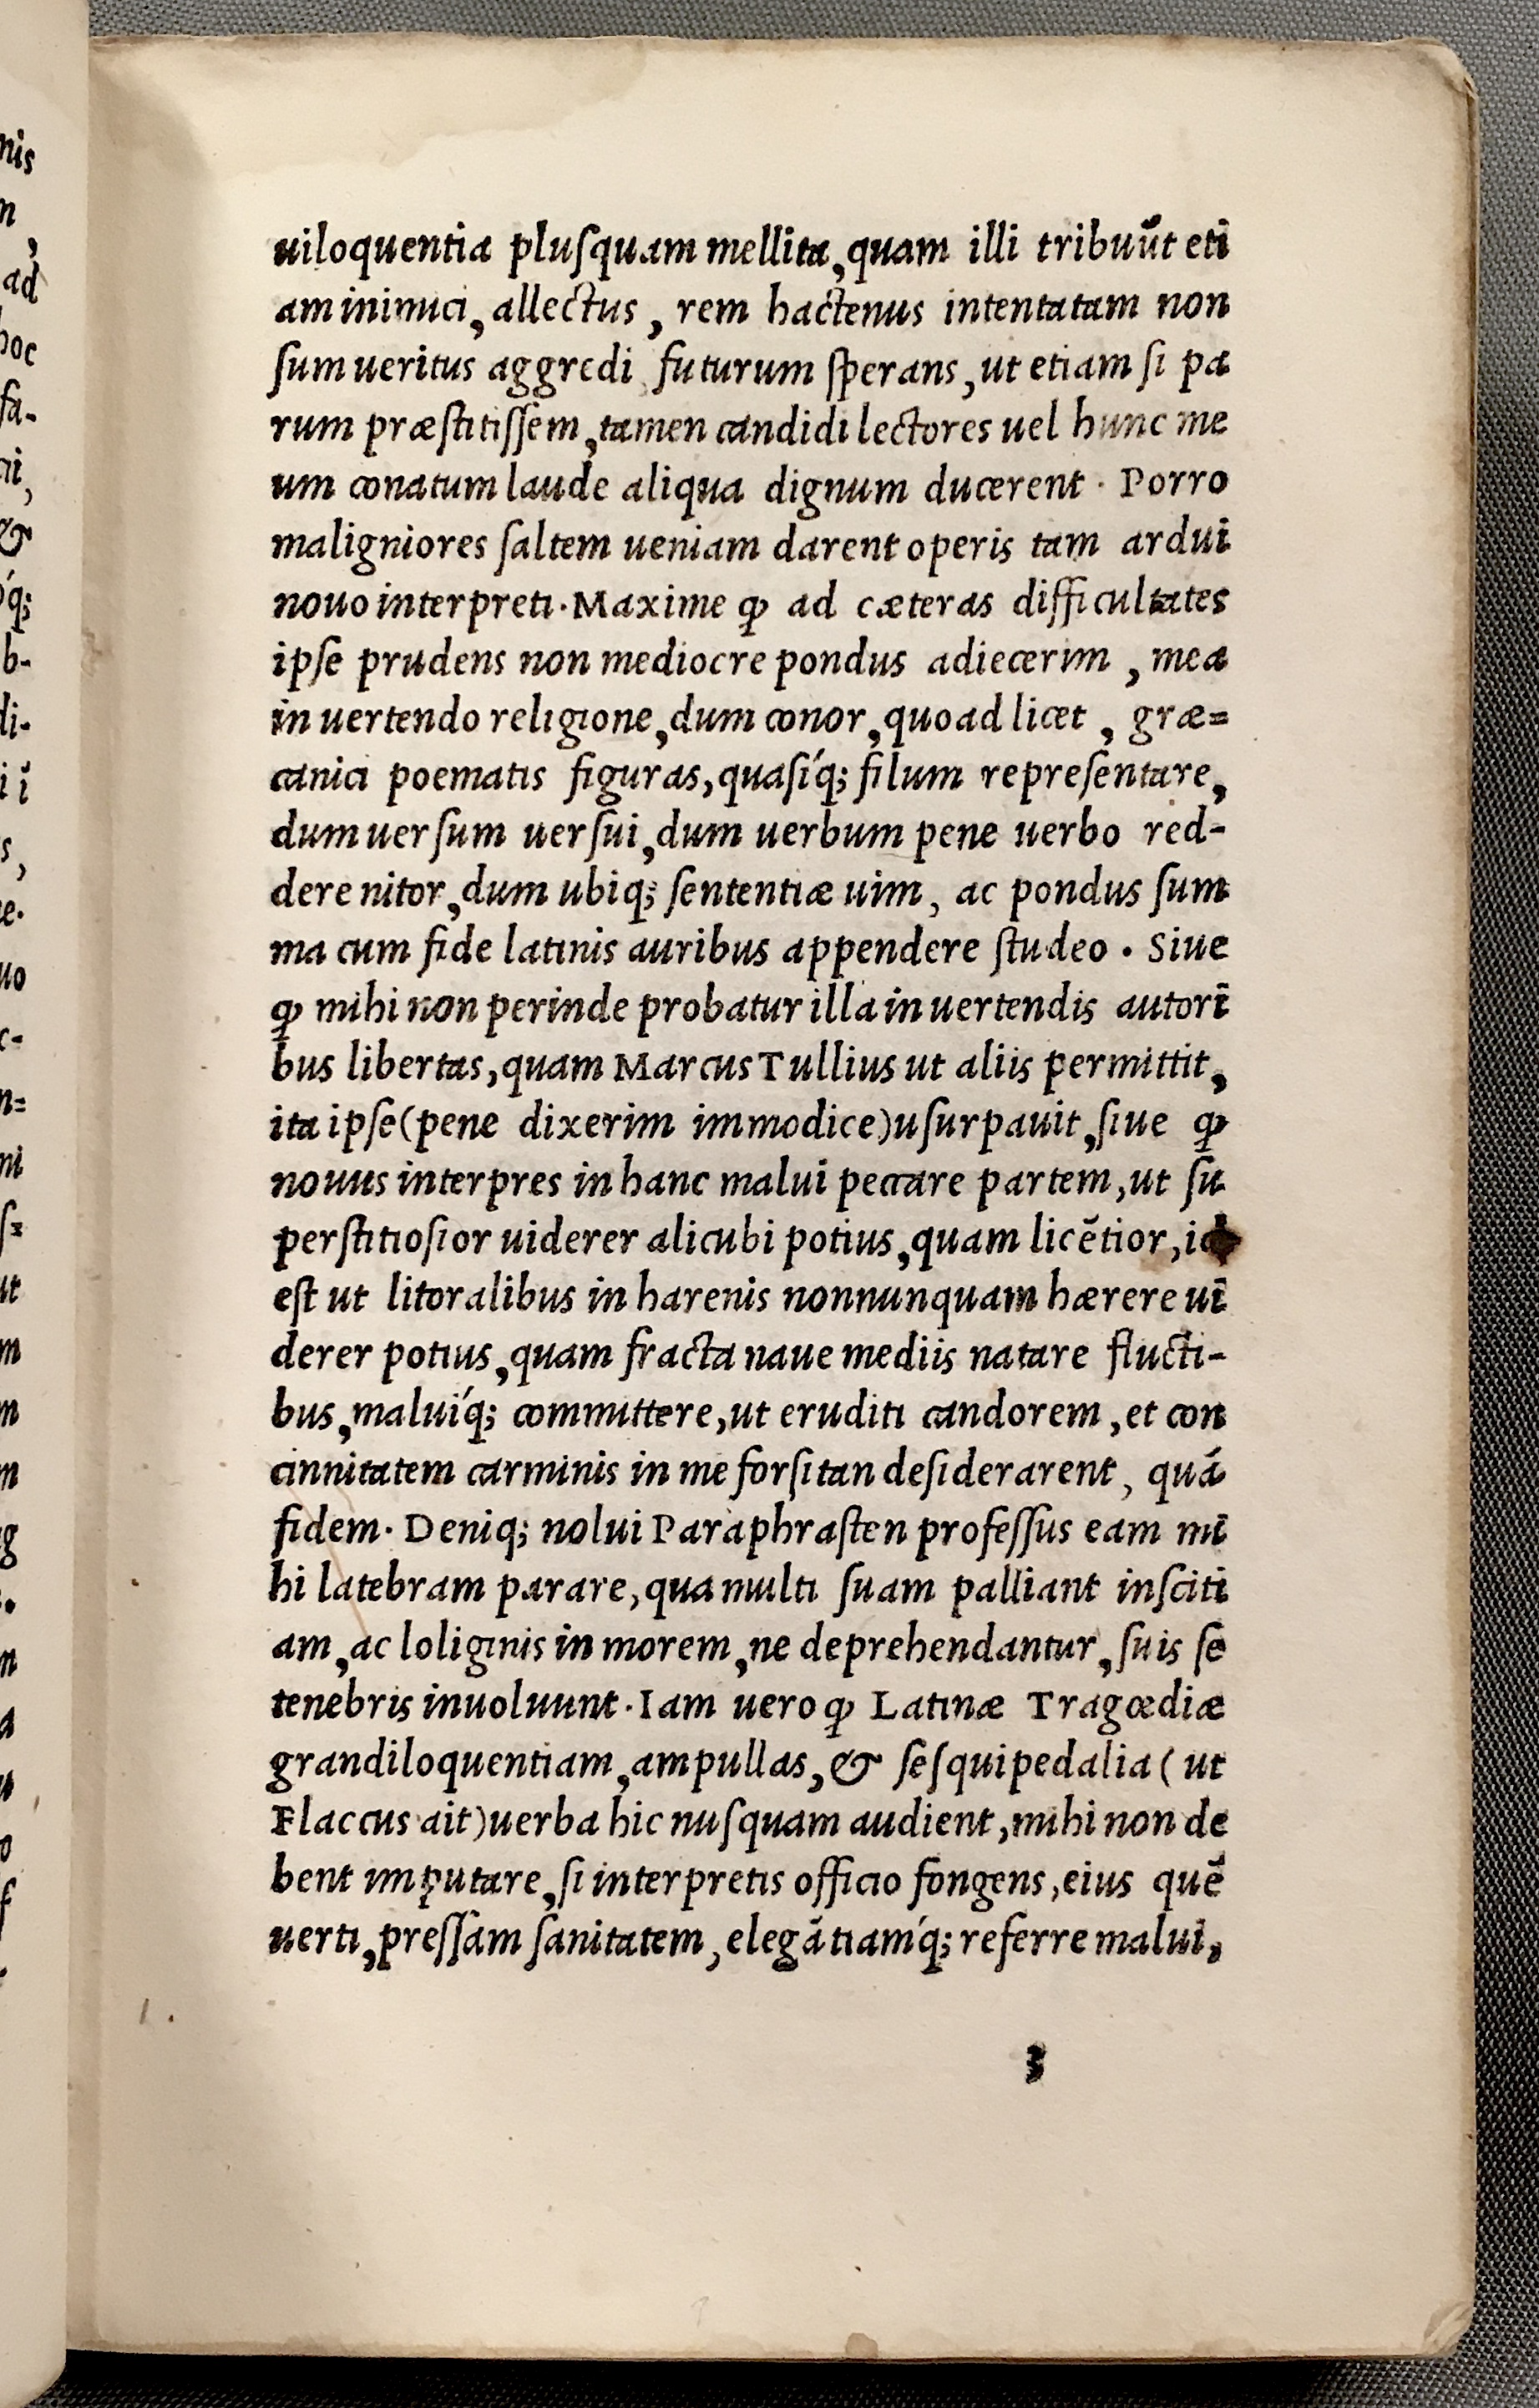 uiloquentia pluſquam mellita, quam illi tribuūt eti
am inimici, allectus, rem hactenus intentatam non
ſum ueritus aggredi futurum ſperans, ut etiam ſi pa
rum præſtitiſſem, tamen candidi lectores uel hunc me
um conatum laude aliqua dignum ducerent. Porro
maligniores ſaltem ueniam darent operis tam ardui
nouo interpreti. Maxime ꝙ ad cæteras difficultates
ipſe prudens non mediocre pondus adiecerim, mea
in uertendo religione, dum conor, quoad licet, græ=
canici poematis figuras, quaſíq; filum repreſentare,
dum uerſum uerſui, dum uerbum pene uerbo red-
dere nitor, dum ubiq; ſententiæ uim, ac pondus ſum
ma cum fide latinis auribus appendere ſtudeo. Siue
ꝙ mihi non perinde probatur illa in uertendis autori
bus libertas, quam Marcus Tullius ut aliis permittit,
ita ipſe (pene dixerim immodice) uſurpauit, ſiue ꝙ
nouus interpres in hanc malui peccare partem, ut ſu
perſtitioſior uiderer alicubi potius, quam licētior, id
eſt ut litoralibus in harenis nonnunquam hærere ui
derer potius, quam fracta naue mediis natare flucti-
bus, maluíq; committere, ut eruditi candorem, et con
cinnitatem carminis in me forſitan deſiderarent, quā
fidem. Deniq; nolui Paraphraſten profeſſus eam mi
hi latebram parare, qua multi ſuam palliant inſciti
am, ac loliginis in morem, ne deprehendantur, ſuis ſe
tenebris inuoluunt. Iam uero ꝙ Latinæ Tragœdiæ
grandiloquentiam, ampullas, & ſeſquipedalia (ut
Flaccus ait) uerba hic nuſquam audient, mihi non de
bent imputare, ſi interpretis officio fongens, eius quē
uerti, preſſam ſanitatem, elegātiamq́; referre malui,
3
nis
n,
ad
hoc
fa-
&
b-
di-